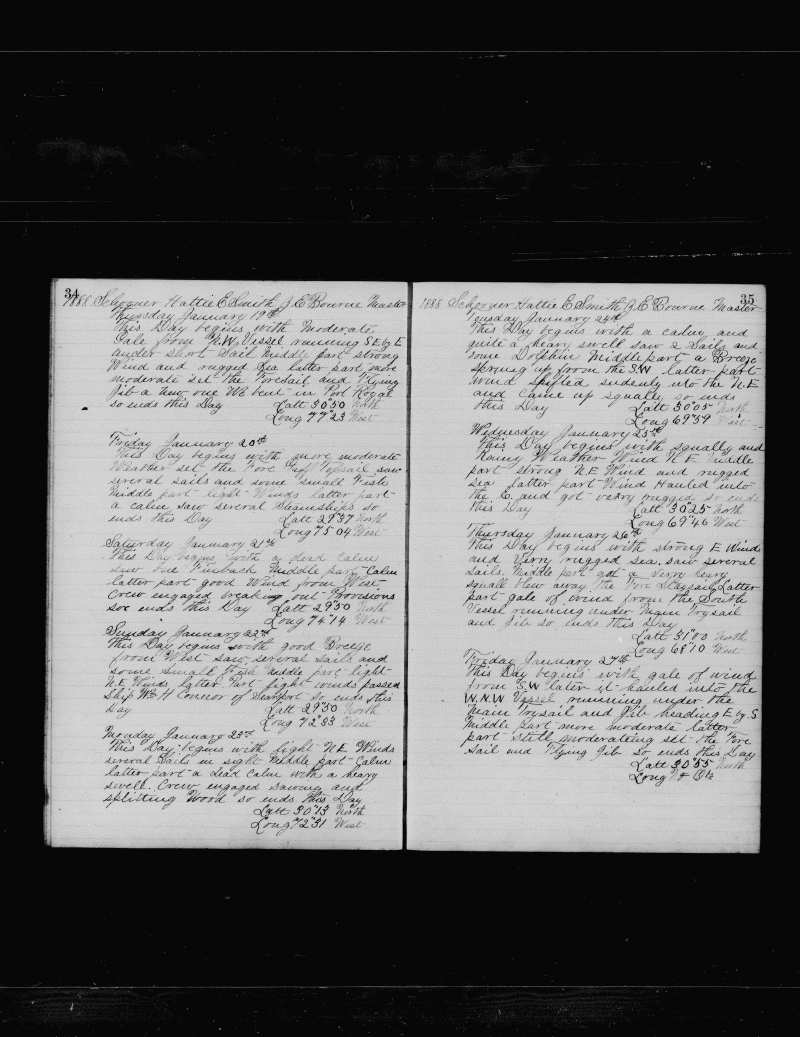 34
1888 Schooner Hattie E Smith J. E Bourne Master
Thursday January 19th
This Day begins with Moderate
Gale from N.W. Vessel running S.E by E
under short Sail Middle part strong
Wind and rugged Sea latter part more
moderate set the Foresail and Flying
Jib a new one We bent in Port Royal
so ends this Day Latt 30°50 North
Long 77°23 West
Friday January 20th
This Day begins with more moderate
Weather set the Fore Gaff Topsail saw
several sails and some small Fish
Middle part light Winds latter part
a calm saw several Steamships so
ends this Day Latt 29°37 North
Long 75 04 West
Saturday January 21st
This Day begins with a dead Calm
saw one Finback Middle part Calm
latter part good Wind from West
Crew engaged breaking out Provisions
soe ends this Day Latt 29°50 North
Long 74°14 West
Sunday January 22nd
This Day begins with good Breeze
from West saw several sails and
some small Fish Middle part light
N.E Winds latter Part light winds passed
Ship Wm H Connor of Searsport so ends this
Day Latt 29°50 North
Long 72°33 West
Monday January 23rd
This Day begins with light N E Winds
several Sails in sight Middle part Calm
latter part a dead Calm with a heavy
swell. Crew engaged sawing and
splitting Wood so ends this Day
Latt 30°13 North
Long 72°31 West
35
1888 Schooner Hattie E. Smith J. E Bourne Master
Tuesday January 24th
This Day begins with a calm and
quite a heavy swell saw 2 Sails and
some Dolphin Middle part a Breeze
sprung up from the S.W latter part
wind shifted sudenly into the N.E
and Came up squaly so ends
this Day Latt 30°05 North
Long 69°59 West
Wednesday January 25th
This Day begins with squally and
Rainy Weather Wind N.E Middle
part strong N.E Wind and rugged
sea latter part Wind Hauled into
the E. and got verry rugged so ends
this Day Latt 30°25 North
Long 69°46 West
Thursday January 26th
This Day begins with strong E Wind
and verry rugged sea, saw several
sails. Middle part got a verry heavy
squall blew away the Fore Staysail Latter
part gale of wind from the South
Vessel running under Main Trysail
and Jib so ends this Day
Latt 31°00 North
Long 68°10 West
Friday January 27th
This Day begins with gale of wind
from S.W later it hauled into the
W.N.W Vessel running under the
Main Trysail and Jib heading E by S.
Middle part more moderate latter
part still moderating set the Fore
sail and Flying Jib so ends this Day
Latt 30°55 North
Long